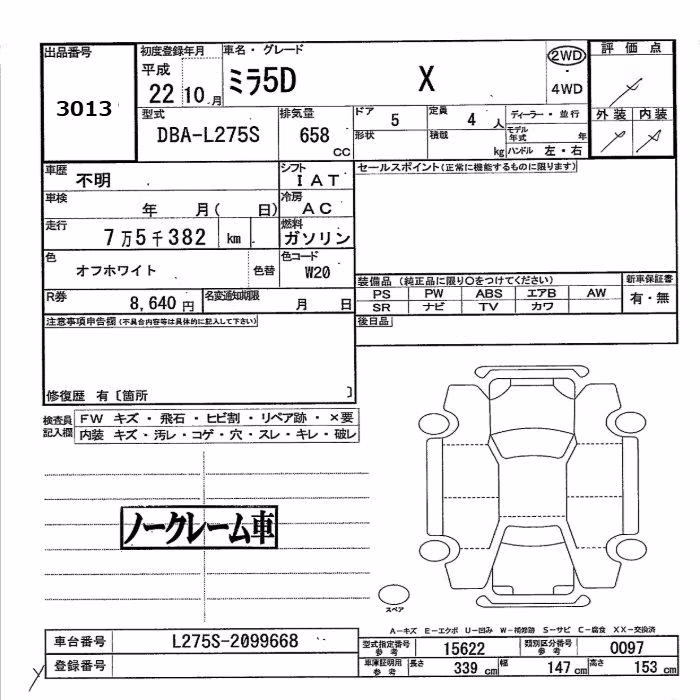 出品番号
3013
初度登録年月
平成
22 10 月
車名・グレード
ミラ5D X
2WD
・
4WD
評価点
外装 内装
型式
DBA-L275S
排気量
658
CC
ドア 5
定員 4 人
ディーラー・並行
形状
積載 kg
モデル年式 年
ハンドル 左・右
車歴 不明
シフト IAT
車検 年 月( 日)
冷房 AC
走行 7万5千382 km
燃料 ガソリン
色 オフホワイト 色替
色コード W20
R券 8,640円
名変通知期限 月 日
セールスポイント(正常に機能するものに限ります)
装備品 (純正品に限り○をつけてください)
PS PW ABS エアB AW
SR ナビ TV カワ
新車保証書
有・無
後日品
注意事項申告欄(不具合内容等は具体的に記入して下さい)
修復歴 有〔箇所 〕
検査員記入欄
FW キズ・飛石・ヒビ割・リペア跡・×要
内装 キズ・汚レ・コゲ・穴・スレ・キレ・破レ
ノークレーム車
スペア
A-キズ E-エクボ U-凹み W-補修跡 S-サビ C-腐食 XX-交換済
車台番号 L275S-2099668
登録番号
型式指定番号参考 15622
類別区分番号参考 0097
車庫証明用参考 長さ 339 cm 幅 147 cm 高さ 153 cm